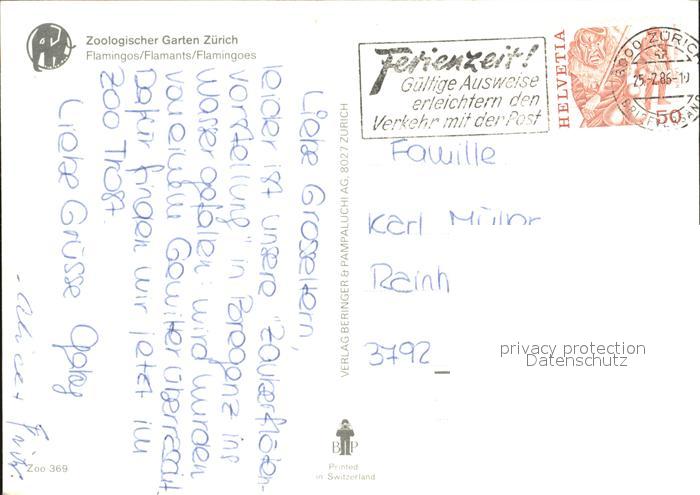 Zoologischer Garten Zürich
Flamingos/Flamants/Flamingoes
Liebe Grosseltern,
leider ist unsere "Zauberflöten-
vorstellung" in Bregenz ins
Wasser gefallen: wird wurden
von einem Gewitter überrascht.
Dafür fingen wir jetzt im
Zoo Trost.
Liebe Grüsse
Zoo 369
VERLAG BERINGER & PAMPALUCHI AG, 8027 ZÜRICH
BIP
Printed
in Switzerland
Ferienzeit!
Gültige Ausweise
erleichtern den
Verkehr mit der Post
HELVETIA
50
8000 ZÜRICH
BRIEFVERSAND
Familie
Karl Müller
Rainh
3792
privacy protection
Datenschutz